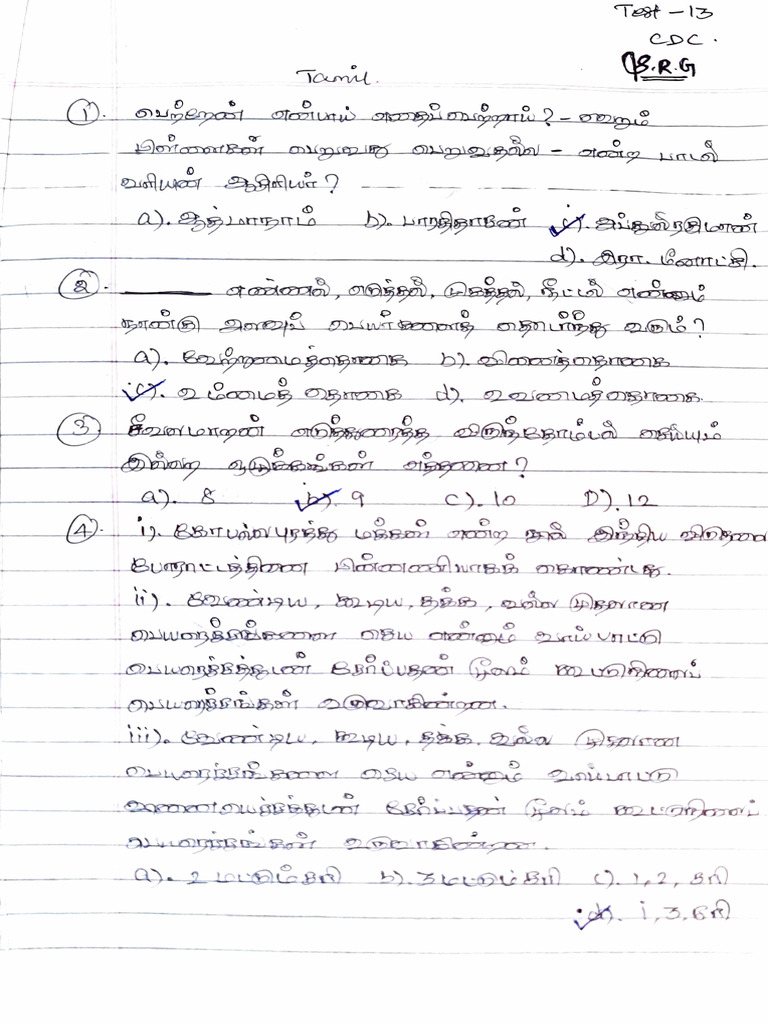 Test - 13
CDC.
S.R.G
Tamil.
①. பெற்றேன் என்பாய் எதைப்பெற்றாய்? - வெறும்
பிள்ளைகள் பெறுவது பெறுவதல்ல - என்ற பாடல்
வரியின் ஆசிரியர்?
a). ஆத்மாநாம் b). பாரதிதாசன் c). அப்துல்ரகுமான்
d). இரா. மீனாட்சி.
②. எண்ணல், எடுத்தல், முகத்தல், நீட்டல் என்னும்
நான்கு அளவுப் பெயர்களைத் தொடர்ந்து வரும்?
a). வேற்றுமைத்தொகை b). வினைத்தொகை
c). உம்மைத் தொகை d). உவமைத்தொகை.
③ எடுத்துரைத்த விருந்தோம்பல் செய்யும்
இல்லற ஒழுக்கங்கள் எத்தனை?
a). 8 b). 9 c). 10 D). 12
④. i). கோபல்லபுரத்து மக்கள் என்ற நூல் இந்திய விடுதலை
போராட்டத்தினை பின்னணியாகக் கொண்டது.
ii). வேண்டிய, கூடிய, தக்க, வல்ல முதலான
பெயரெச்சங்களை செய என்னும் வாய்பாட்டு
பெயரெச்சத்துடன் சேர்ப்பதன் மூலம் கூட்டுநிலைப்
பெயரெச்சங்கள் உருவாகின்றன.
iii). வேண்டிய, கூடிய, தக்க, வல்ல முதலான
பெயரெச்சங்களை செய என்னும் வாய்பாட்டு
வினையெச்சத்துடன் சேர்ப்பதன் மூலம் கூட்டுநிலைப்
பெயரெச்சங்கள் உருவாகின்றன.
a). 2 மட்டும் சரி b). 3 மட்டும் சரி c). 1, 2, சரி
d). i, 3, சரி